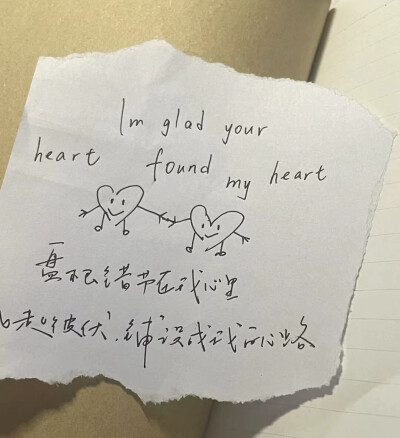 Im glad your
heart found my heart
盘根错节在我心里
起彼伏,铺设成我的心路